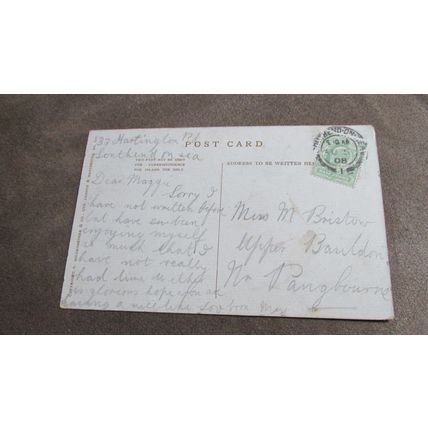 133 Hartington Rd
Southend on sea
POST CARD.
THIS PART MAY BE USED
FOR CORRESPONDENCE
FOR INLAND USE ONLY
ADDRESS TO BE WRITTEN HE
Dear Maggie
Sorry I
have not written before
but have been
enjoying myself
so much that I
have not really
had time weather
is glorious hope you are
having a nice time
May
Miss M Bristow
Upper Basildon
Nr Pangbourne
SOUTHEND-ON-SEA
08